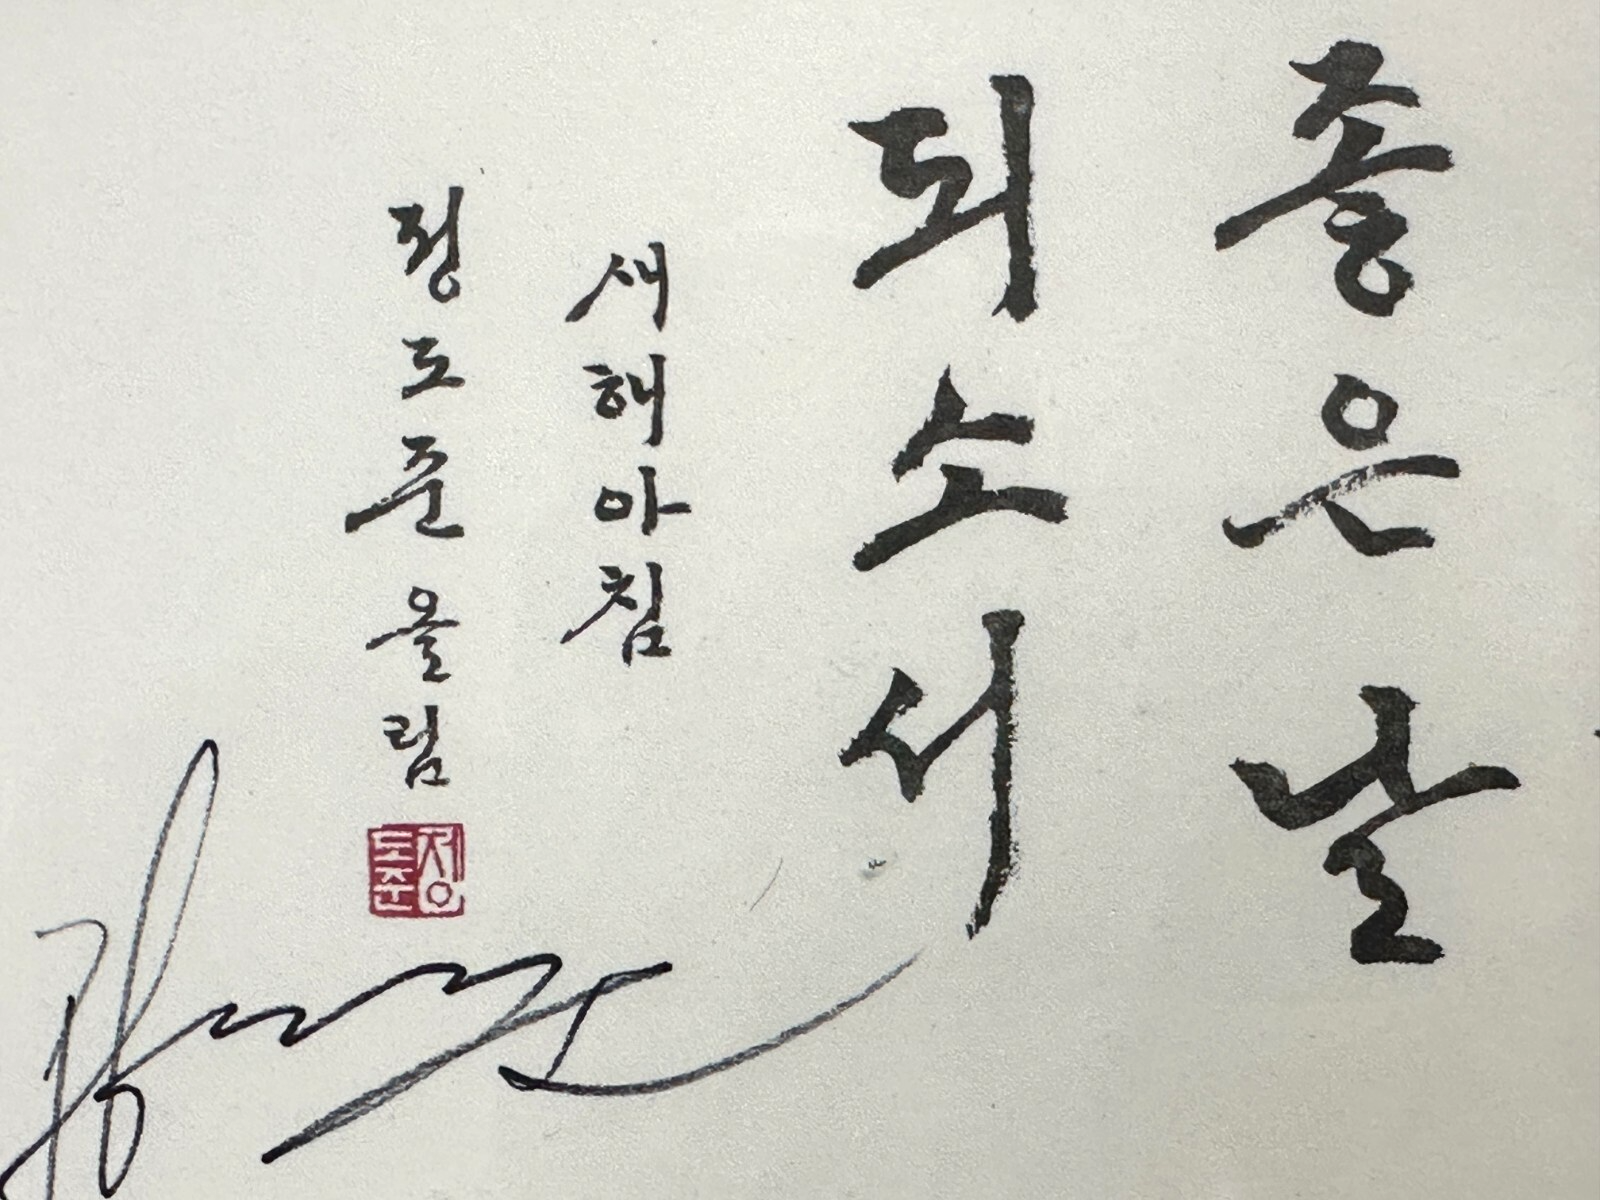 좋은날
되소서
새해아침
정도준 올림
정도준